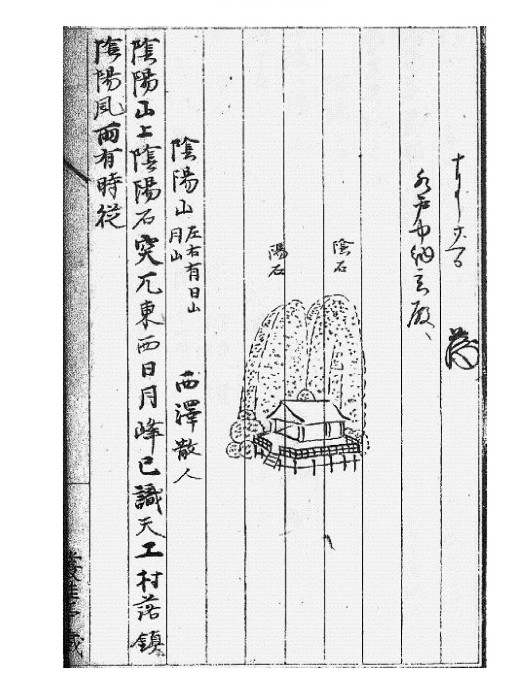 水戸中納言殿
陰石
陽石
陰陽山 左右有日山月山 西澤散人
陰陽山上陰陽石突兀東西日月峰已識天工村落鎮
陰陽風雨有時従